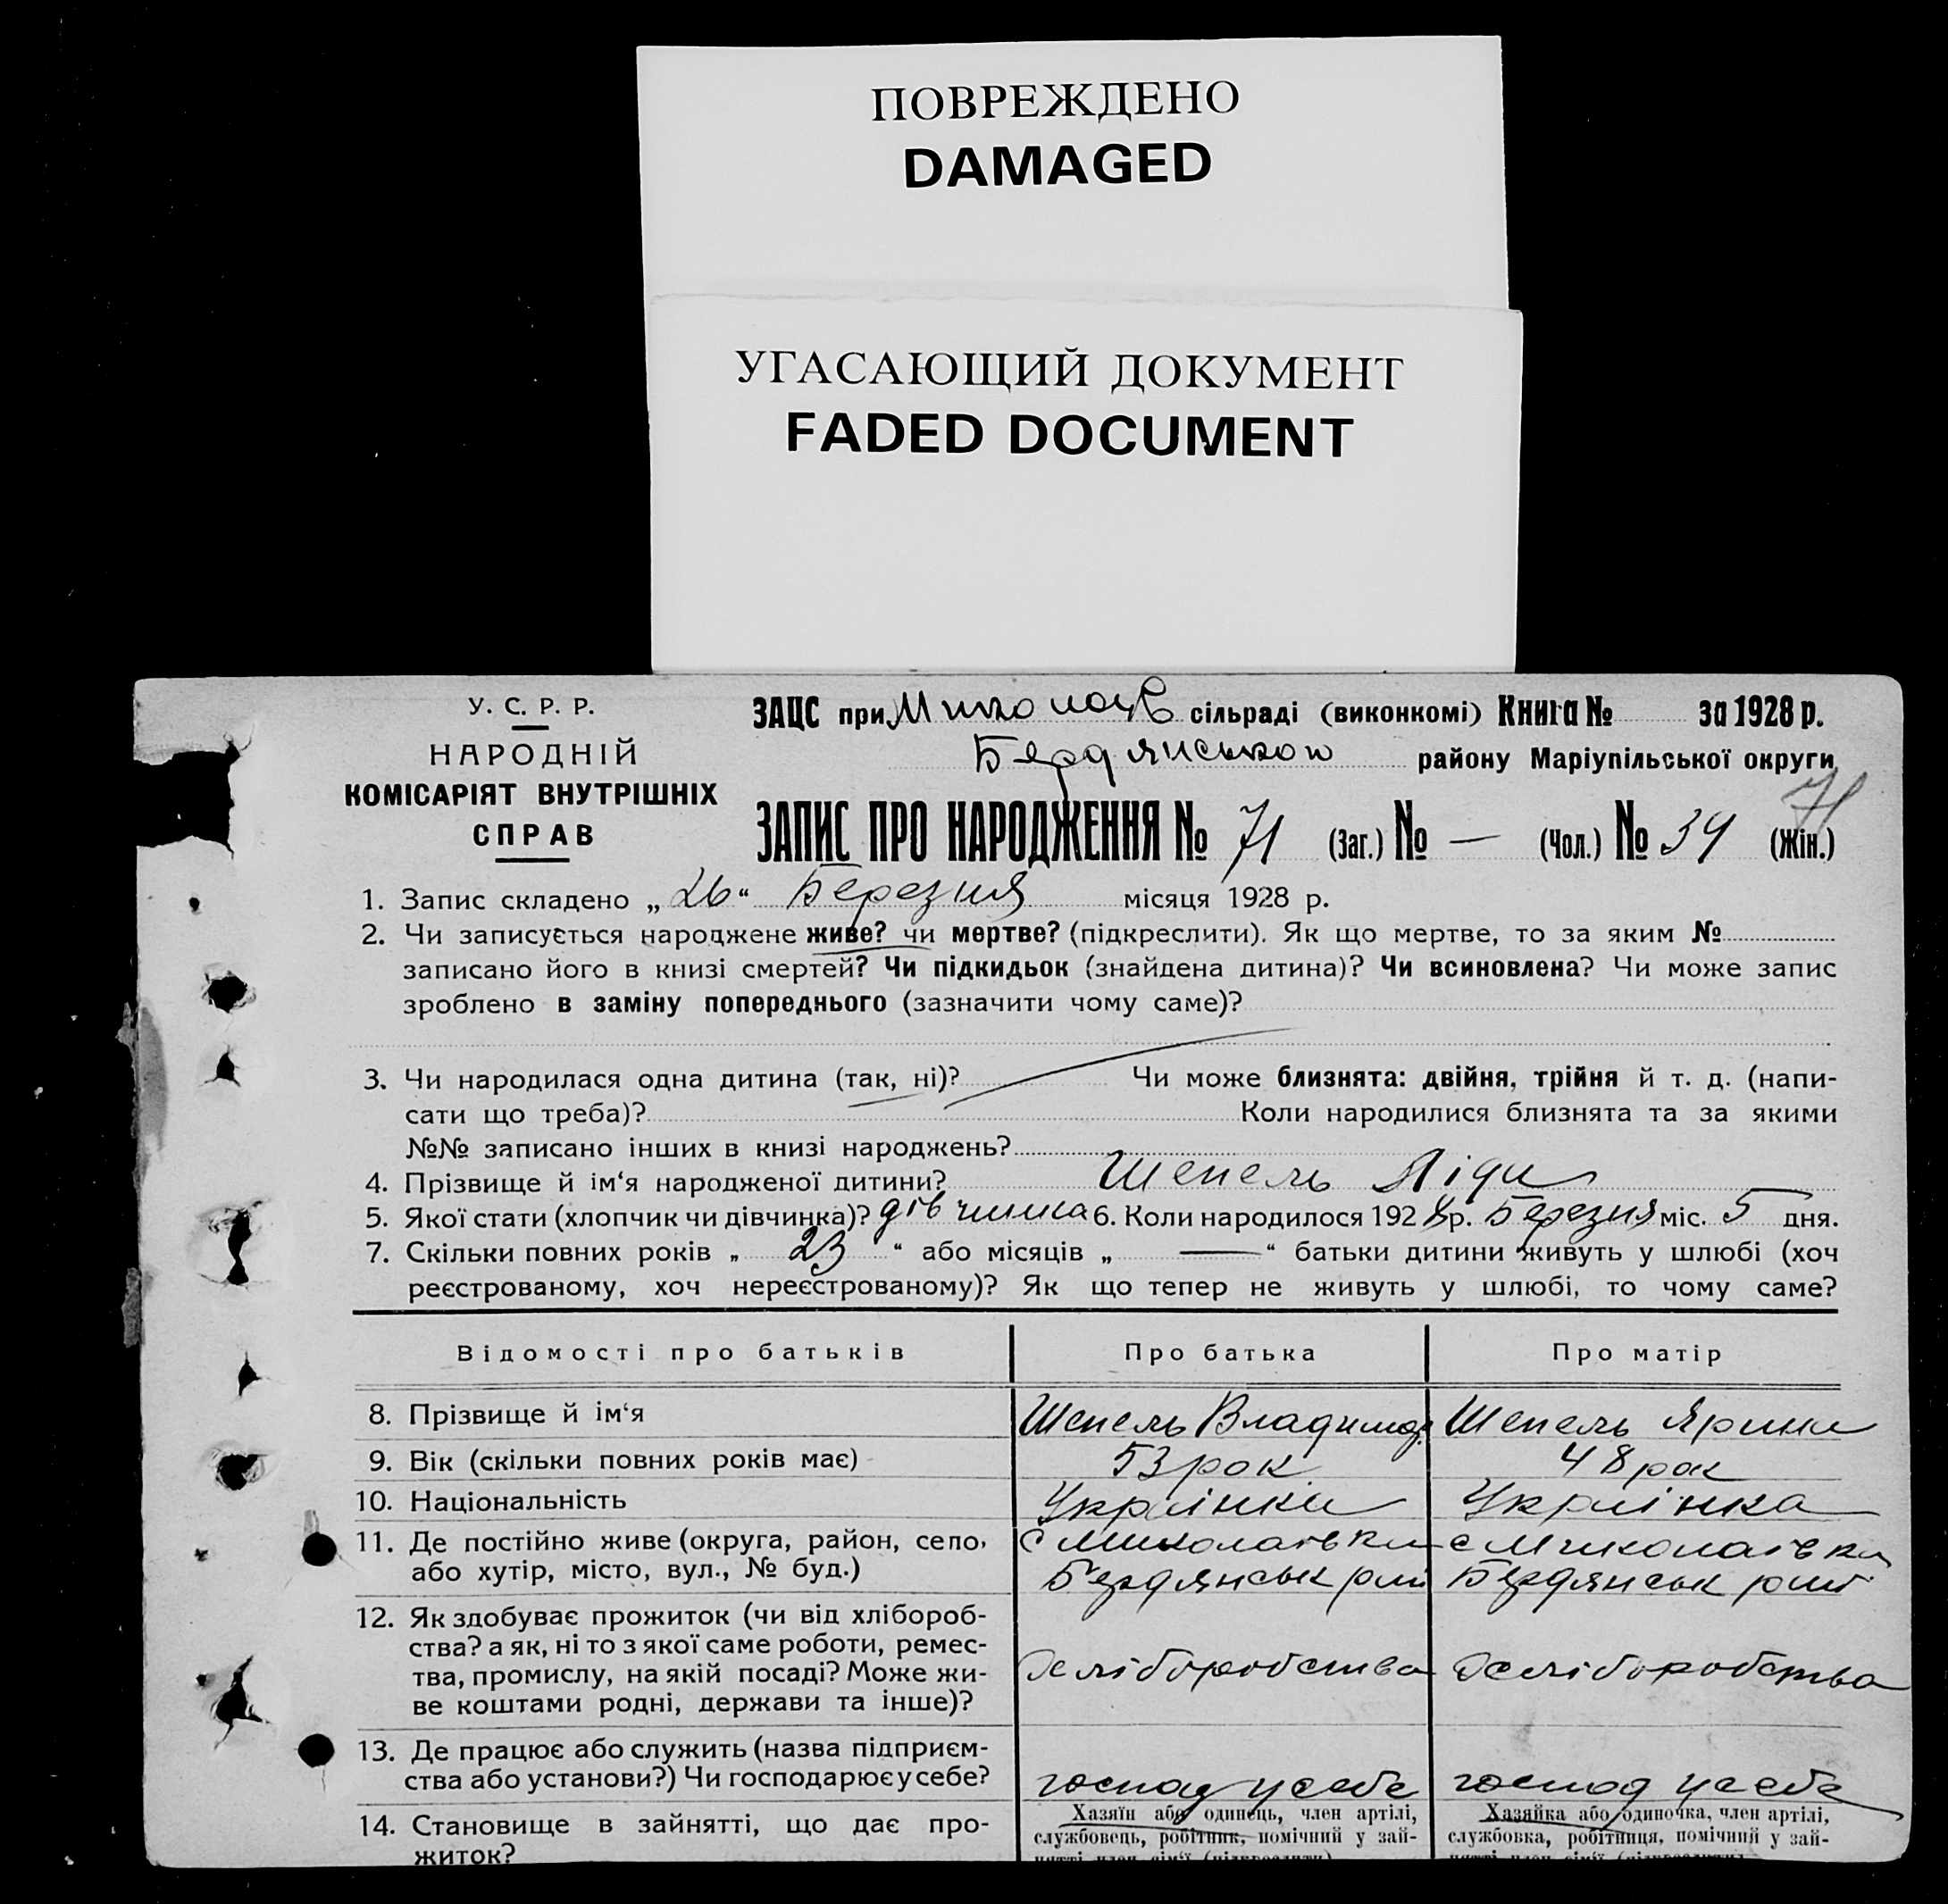 ПОВРЕЖДЕНО
DAMAGED
УГАСАЮЩИЙ ДОКУМЕНТ
FADED DOCUMENT
У. С. Р. Р.
НАРОДНІЙ
КОМІСАРІЯТ ВНУТРІШНІХ
СПРАВ
ЗАЦС при Миколаїв сільраді (виконкомі) Книга № за 1928 р.
Бердянського району Маріупільської округи
71
ЗАПИС ПРО НАРОДЖЕННЯ № 71 (Заг.) № — (Чол.) № 34 (Жін.)
1. Запис складено „ 26 “ Березня місяця 1928 р.
2. Чи записується народжене живе? чи мертве? (підкреслити). Як що мертве, то за яким №
записано його в книзі смертей? Чи підкидьок (знайдена дитина)? Чи всиновлена? Чи може запис
зроблено в заміну попереднього (зазначити чому саме)?
3. Чи народилася одна дитина (так, ні)? Чи може близнята: двійня, трійня й т. д. (напи-
сати що треба)? Коли народилися близнята та за якими
№№ записано інших в книзі народжень?
4. Прізвище й ім‘я народженої дитини? Шепель Ліда
5. Якої стати (хлопчик чи дівчинка)? дівчинка 6. Коли народилось 1928 р. Березня міс. 5 дня.
7. Скільки повних років „ 23 “ або місяців „ — “ батьки дитини живуть у шлюбі (хоч
реєстрованому, хоч нереєстрованому)? Як що тепер не живуть у шлюбі, то чому саме?
Відомості про батьків Про батька Про матір
8. Прізвище й ім‘я Шепель Владимір Шепель Ярина
9. Вік (скільки повних років має) 53 рок 48 рок
10. Національність Українка Українка
11. Де постійно живе (округа, район, село, с Миколаївка с Миколаївка
або хутір, місто, вул., № буд.) Бердянськ рай Бердянськ рай
12. Як здобуває прожиток (чи від хлібороб-
ства? а як, ні то з якої саме роботи, ремес-
тва, промислу, на якій посаді? Може жи- Хліборобства Хліборобства
ве коштами родні, держави та інше)?
13. Де працює або служить (назва підприєм-
ства або установи?) Чи господарює у себе? господ у себе господ у себе
14. Становище в зайнятті, що дає про-
житок?
Хазяїн або одинець, член артілі,
службовець, робітник, помічний у зай-
нятті член сім‘ї (підкреслити)
Хазяйка або одиночка, член артілі,
службовка, робітниця, помічний у зай-
нятті член сім‘ї (підкреслити)